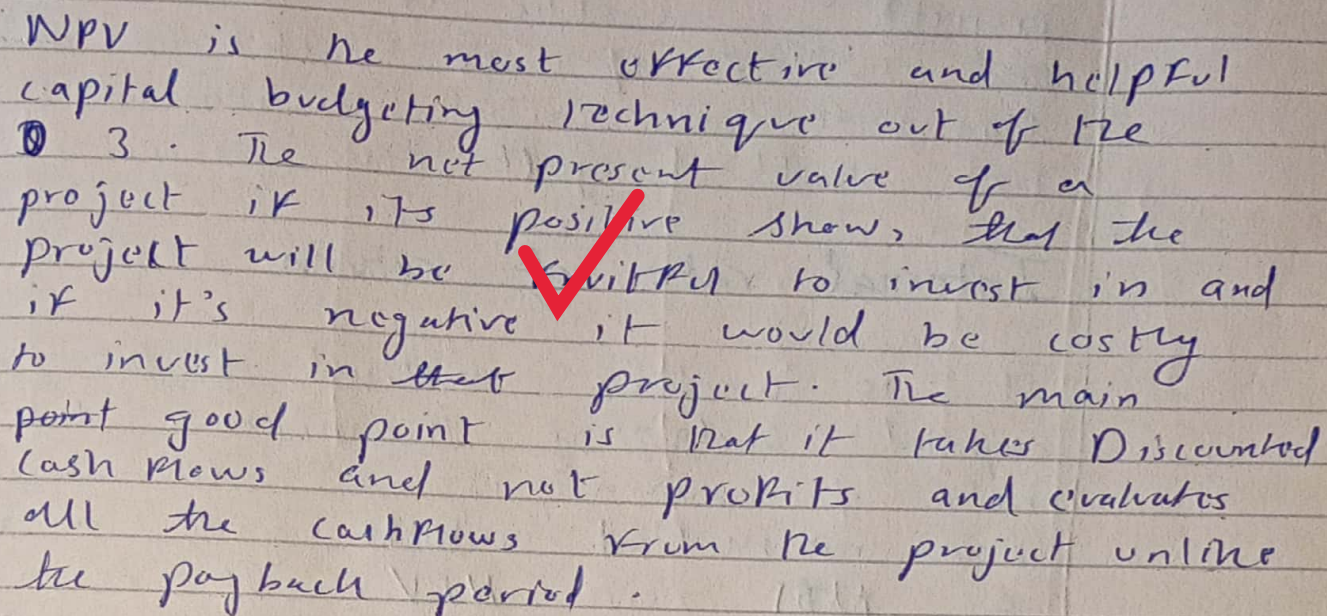 NPV is the most effective and helpful
capital budgeting technique out of the
3. The net present value of a
project if its positive shows that the
project will be fruitful to invest in and
if it's negative it would be costly
to invest in that project. The main
point good point is that it takes Discounted
cash flows and not profits and evaluates
all the cashflows from the project unlike
the payback period.